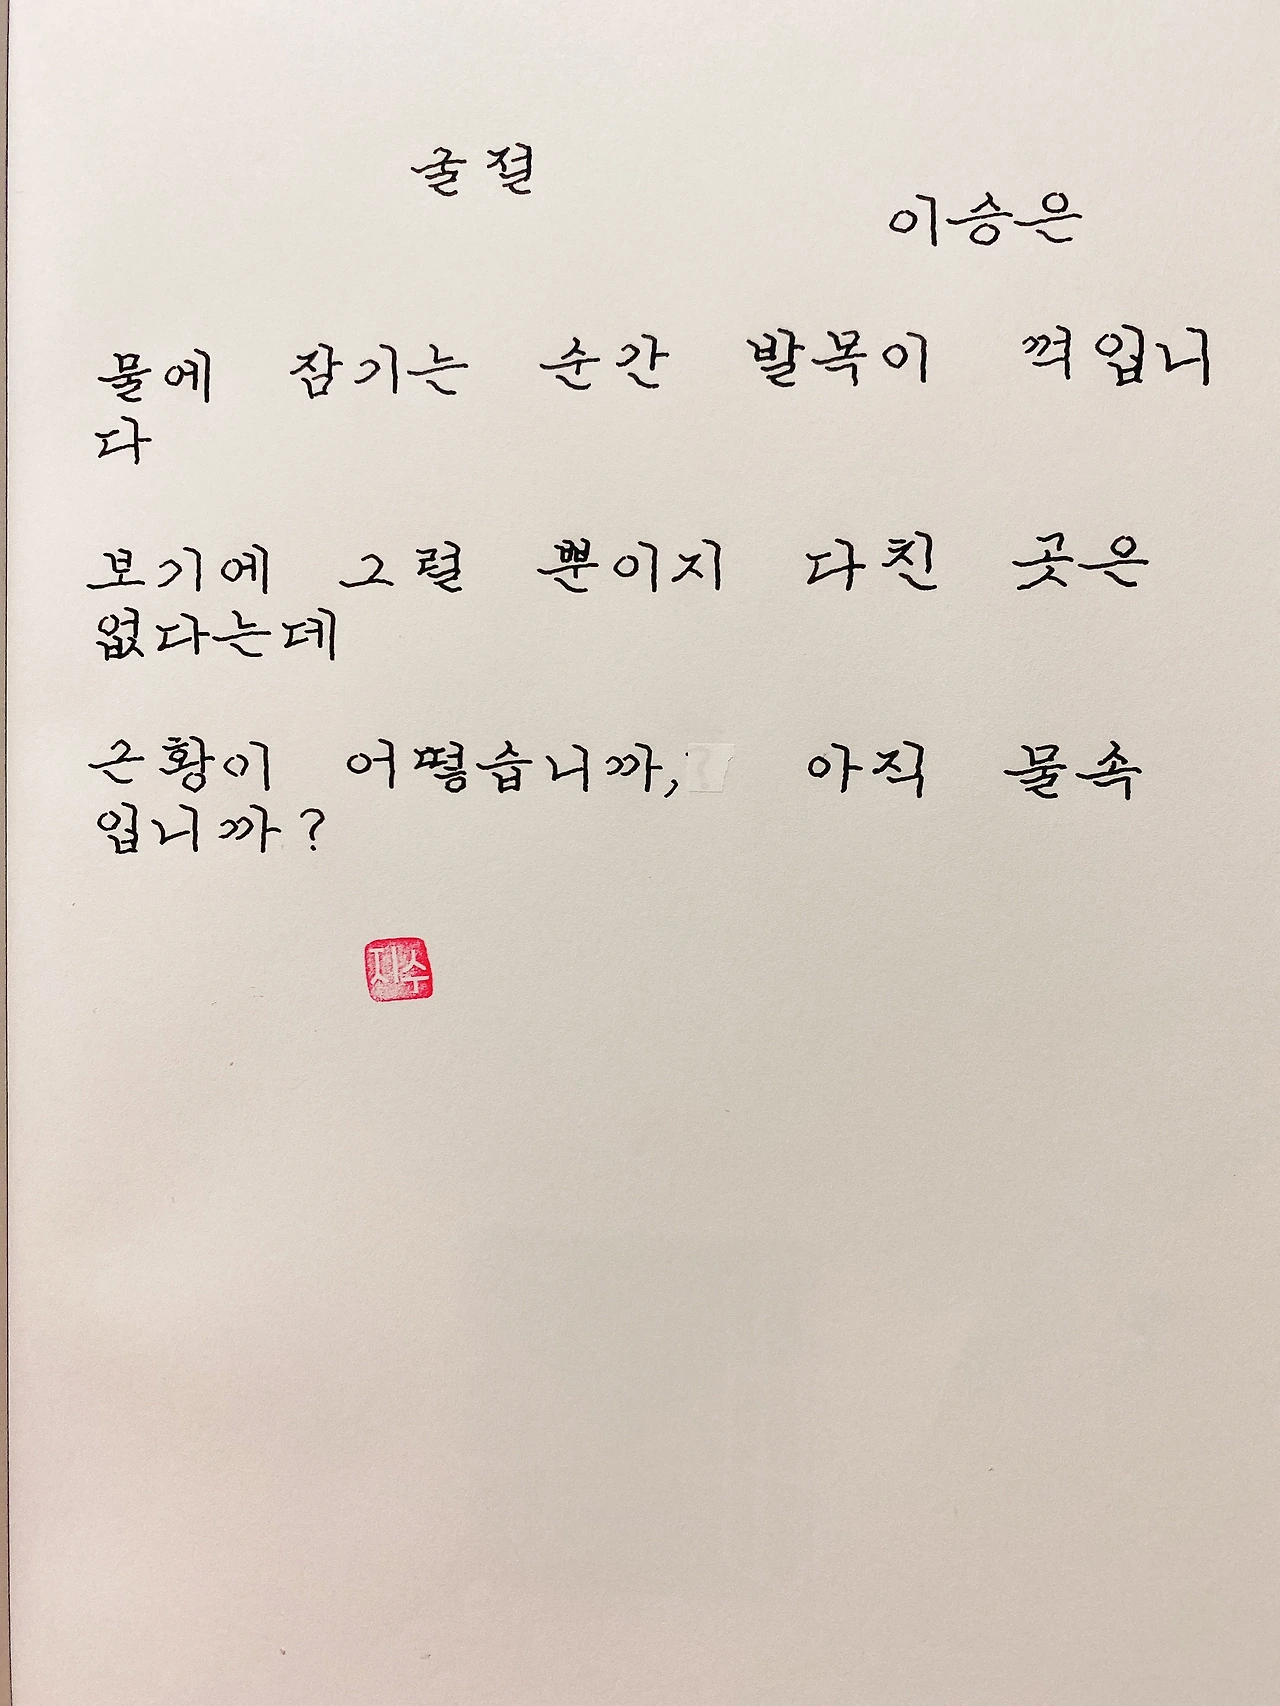 굴절
이승은
물에 잠기는 순간 발목이 꺽입니
다
보기에 그럴 뿐이지 다친 곳은
없다는데
근황이 어떻습니까, 아직 물속
입니까?
지수